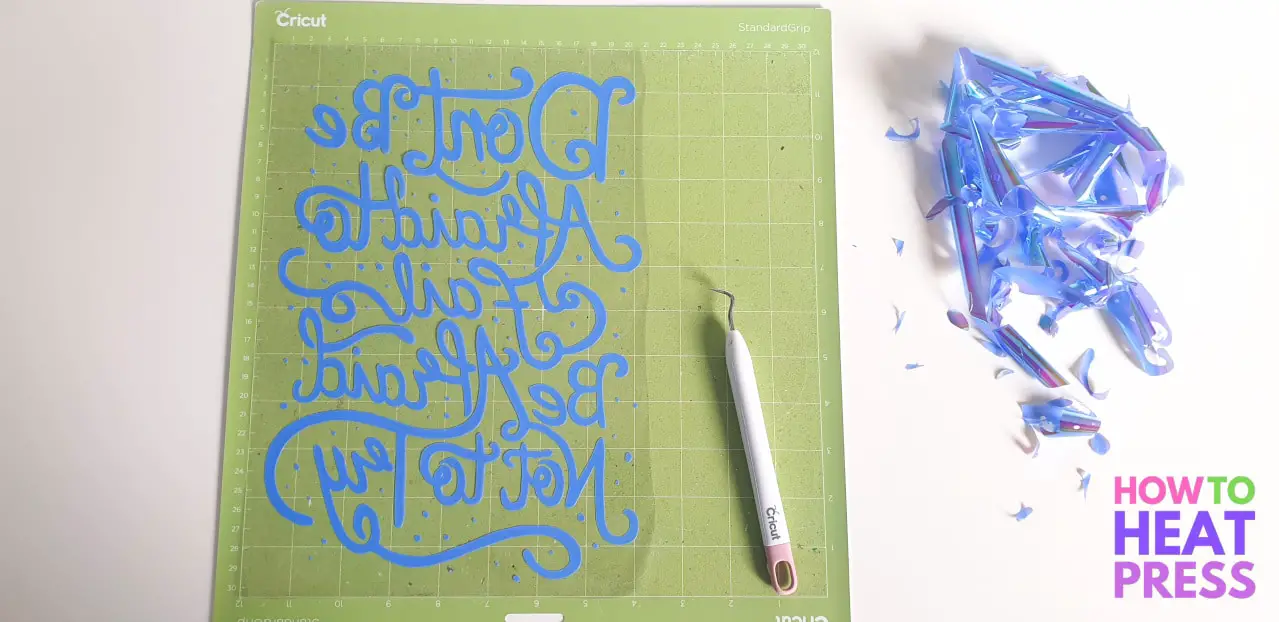 Cricut
StandardGrip
Don't Be
Afraid to
Fail
Be Afraid
Not to Try
Cricut
HOW TO
HEAT
PRESS
Cricut
StandardGrip